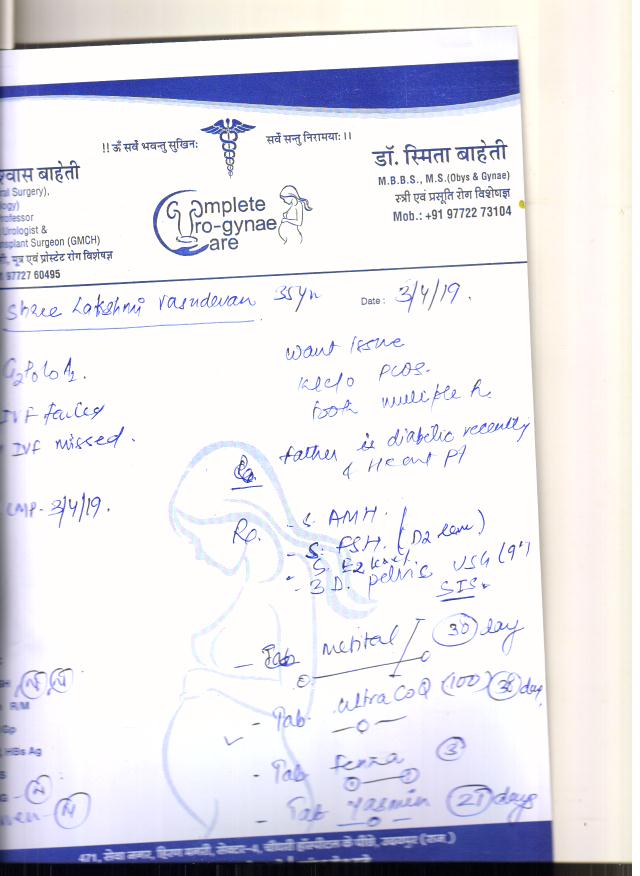 !! ॐ सर्वे भवन्तु सुखिनः
सर्वे सन्तु निरामयाः ।।
श्वास बाहेती
ral Surgery),
logy)
rofessor
Urologist &
nsplant Surgeon (GMCH)
मूत्र एवं प्रोस्टेट रोग विशेषज्ञ
97727 60495
Complete
Uro-gynae
Care
डॉ. स्मिता बाहेती
M.B.B.S., M.S.(Obys & Gynae)
स्त्री एवं प्रसूति रोग विशेषज्ञ
Mob.: +91 97722 73104
Shree Lakshmi Vasudevan 35yr
Date : 3/4/19.
G2P0L0A2.
IVF failed
IVF missed.
LMP- 3/4/19.
want issue
k/c/o PCOS.
Took multiple
father is diabetic recently
& Heart Pt
- S. AMH.
- S. FSH. (D2
S. E2
- 3D. pelvic USG (9th)
SIS
- Tab 30 day
- Tab. Ultra CoQ (100) 30 day
- Tab 3
- Tab Yasmin 21 days
R/M
Gp
HBs Ag
N
N
N
N
471, सेवा नगर, हिरण मगरी, सेक्टर-4, चौधरी हॉस्पीटल के पीछे, उदयपुर (राज.)